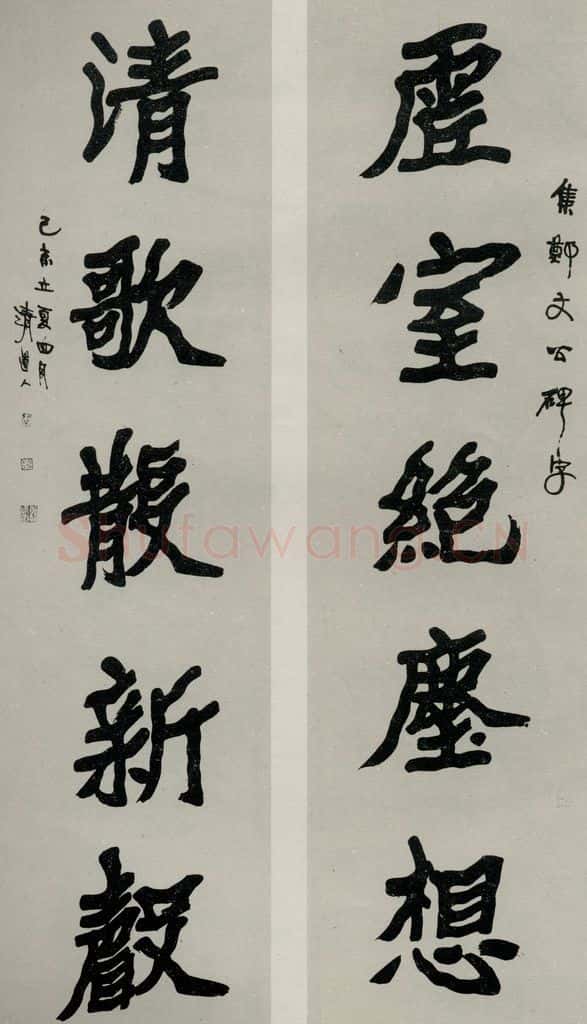 集鄭文公碑字
虛室絕塵想
清歌散新聲
己未立夏四月
清道人
Shufawang.CN